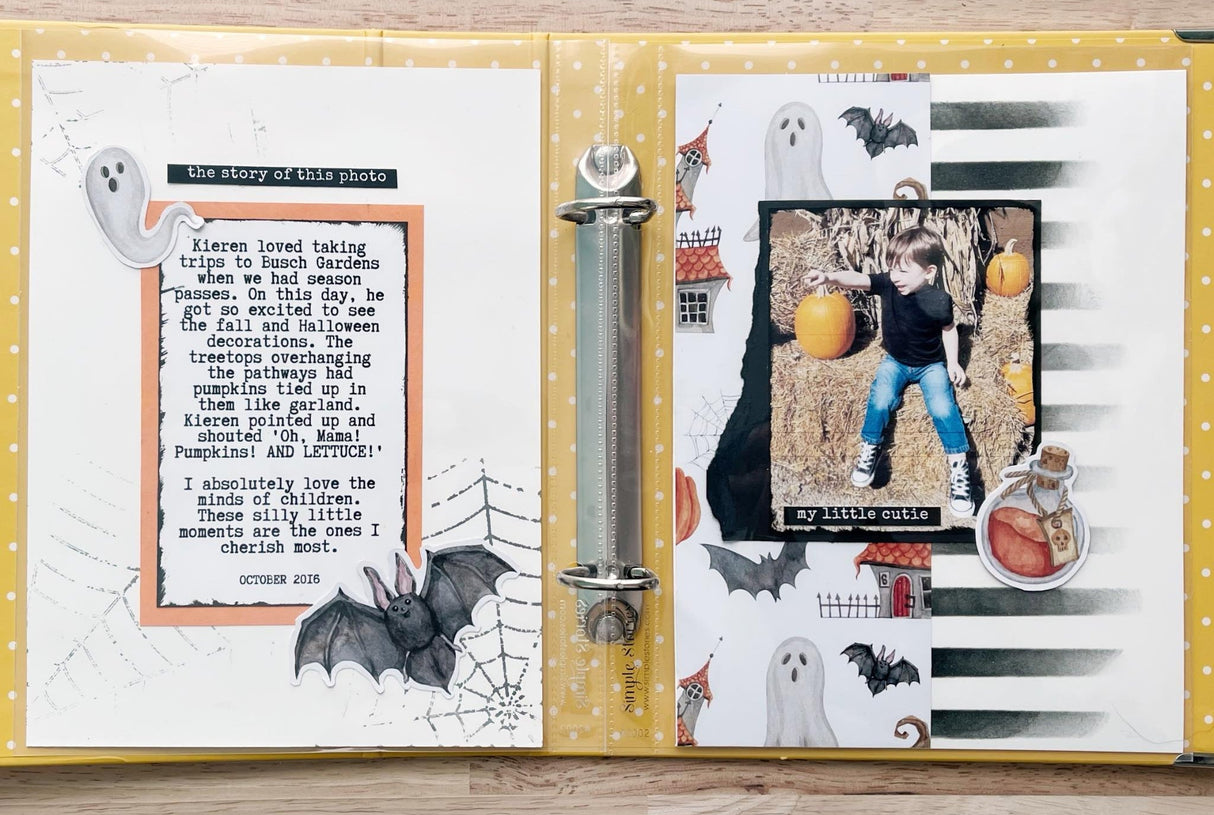 the story of this photo
Kieren loved taking
trips to Busch Gardens
when we had season
passes. On this day, he
got so excited to see
the fall and Halloween
decorations. The
treetops overhanging
the pathways had
pumpkins tied up in
them like garland.
Kieren pointed up and
shouted 'Oh, Mama!
Pumpkins! AND LETTUCE!'
I absolutely love the
minds of children.
These silly little
moments are the ones I
cherish most.
OCTOBER 2016
Simple Stories
www.simplestories.com
Simple Stories
www.simplestories.com
my little cutie